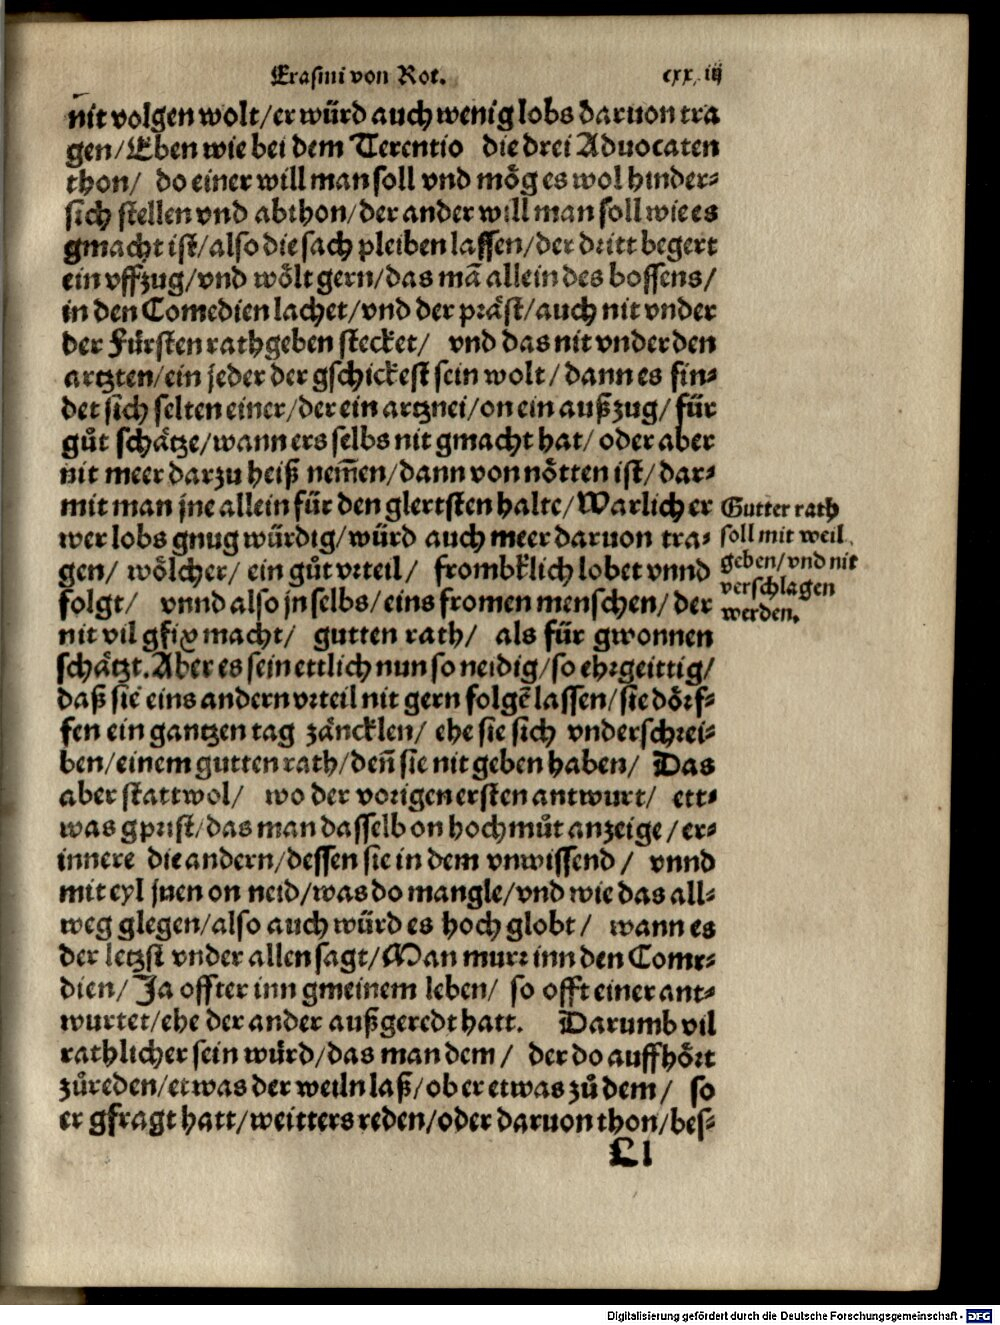 Erasmi von Rot. cxx. iij
nit volgen wolt/er würd auch wenig lobs daruon tra
gen/Eben wie bei dem Terentio die drei Aduocaten
thon/ do einer will man soll vnd mög es wol hinder⸗
sich stellen vnd abthon/der ander will man soll wie es
gmacht ist/also die sach pleiben lassen/der dritt begert
ein vffzug/vnd wölt gern/das mā allein des bossens/
in den Comedien lachet/vnd der präst/auch nit vnder
der Fürsten rathgeben stecket/ vnd das nit vnder den
artzten/ein jeder der gschickest sein wolt/dann es fin⸗
det sich selten einer/der ein artznei/on ein außzug/für
gůt schätze/wann ers selbs nit gmacht hat/oder aber
nit meer darzu heiß nem̃en/dann von nötten ist/dar⸗
mit man jne allein für den glertsten halte/Warlich er
wer lobs gnug würdig/würd auch meer daruon tra⸗
gen/ wölcher/ ein gůt vrteil/ frombklich lobet vnnd
folgt/ vnnd also jn selbs/eins fromen menschen/der
nit vil gfix macht/ gutten rath/ als für gwonnen
schätzt.Aber es sein ettlich nun so neidig/so ehrgeittig/
daß sie eins andern vrteil nit gern folgē lassen/sie dörf⸗
fen ein gantzen tag zäncklen/ ehe sie sich vnderschrei⸗
ben/einem gutten rath/deñ sie nit geben haben/ Das
aber statt wol/ wo der vorigen ersten antwurt/ ett⸗
was gprist/das man dasselb on hochmůt anzeige/er⸗
innere die andern/dessen sie in dem vnwissend/ vnnd
mit eyl jnen on neid/was do mangle/vnd wie das all⸗
weg glegen/also auch würd es hoch globt/ wann es
der letzst vnder allen sagt/Man murr inn den Come⸗
dien/Ja offter inn gmeinem leben/ so offt einer ant⸗
wurtet/ehe der ander außgeredt hatt. Darumb vil
rathlicher sein würd/das man dem/ der do auffhört
zůreden/etwas der weiln laß/ob er etwas zů dem/ so
er gfragt hatt/weitters reden/oder daruon thon/bes⸗
Ll
Gutter rath
soll mit weil
geben/vnd nit
verschlagen
werden.
Digitalisierung gefördert durch die Deutsche Forschungsgemeinschaft - DFG